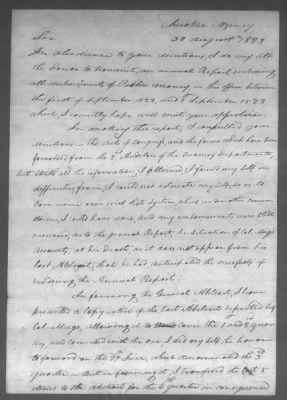 Cherokee Agency
28 August 1823
Sir
In obedience to your directions, I do my self
the honor to transmit, an annual Report, embracing
all disbursments of Public money in this office between
the first of September 1822, and 1st September 1823
which, I earnestly hope will meet your approbation.
In making this report, I consulted your
directions — the Acts of Congress, and the forms which have been
forwarded from the 2d Auditor of the Treasury Departments,
but with all the information I obtained, I found my self in
difficulties from, I could not extricate my self, so as to
com over even with that System, which under other circum
stances, I should have done, and my embarrasments were still
increased, as to the general Report, the situation of Col. Meigs
Accounts, at his death, as it does not appear from his
last Abstract, that he had anticipated the necessity of
rendering the Annual Report.
In forming the General Abstract, I have
presented a copy of each of the last Abstracts reported by
Col. Meigs, allowing it to cover the 1 and 2 quar
ters, and connected with the one I did my self the honor
to forward on the 7th June, which announced the 3rd
quarter — But in forming it, I transfered the last 5
items to the abstract for the 4th quarter in consequence